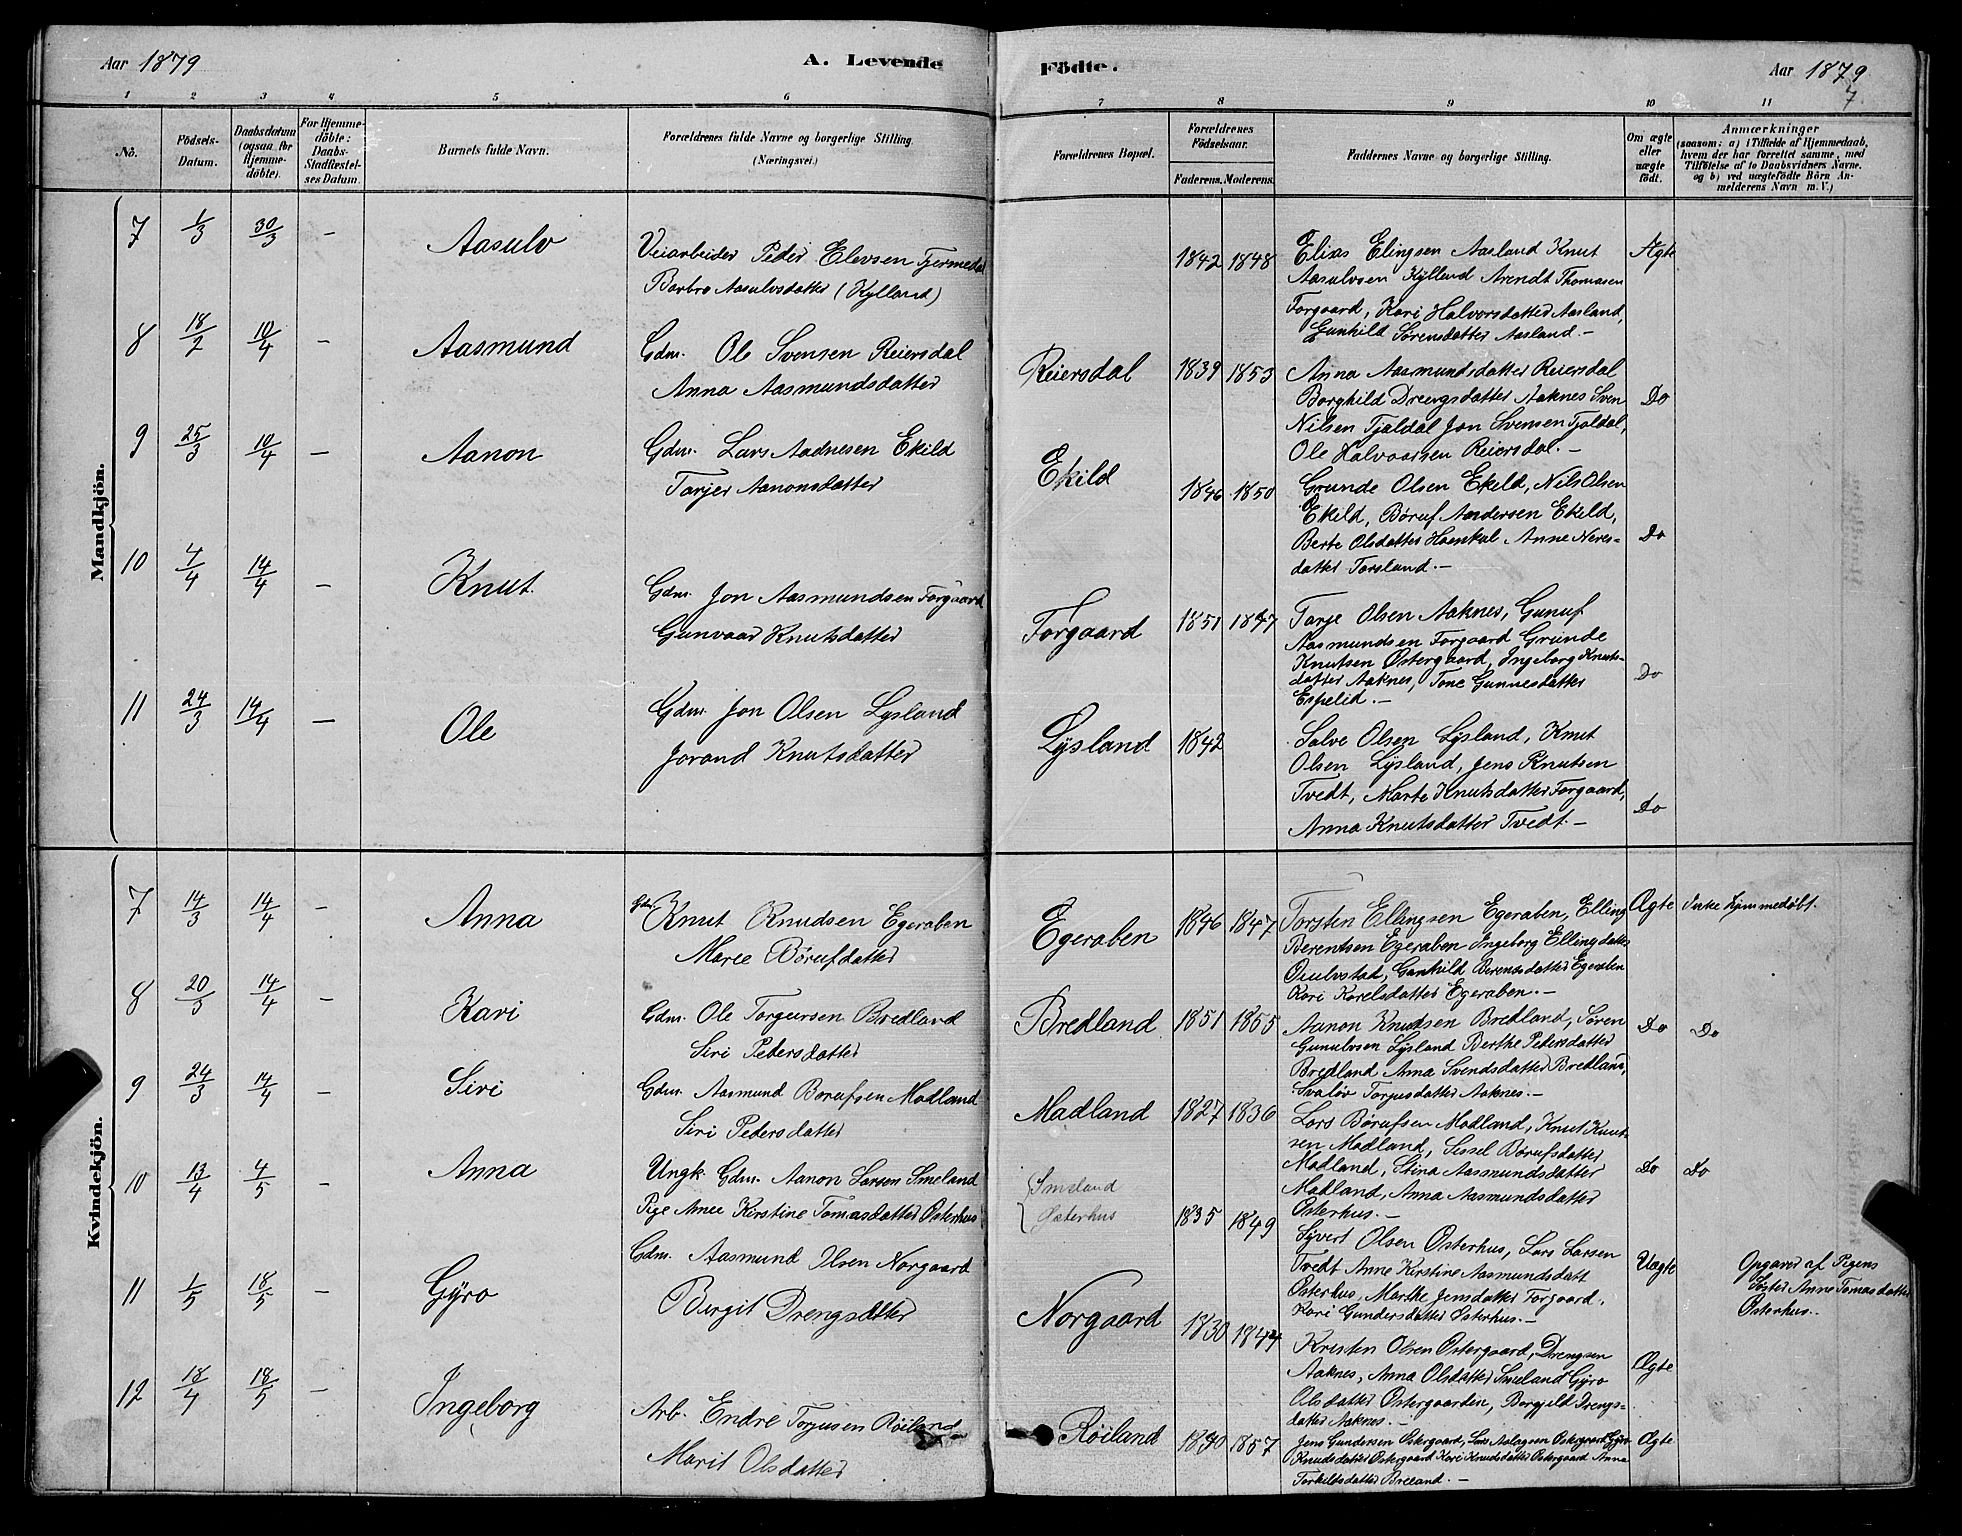 Aar 1879
A. Levende Födte.
Aar 1879
7.
1 2 3 4 5 6 7 8 9 10 11
No.
Födsels-Datum.
Daabsdatum (ogsaa for Hjemme-döbte).
For Hjemme-döbte: Daabs-Stadfæstel-ses Datum.
Barnets fulde Navn.
Forældrenes fulde Navne og borgerlige Stilling.
(Næringsvei.)
Forældrenes Bopæl.
Forældrenes Födselsaar.
Faderens. Moderens.
Faddernes Navne og borgerlige Stilling.
Om ægte eller uægte födt.
Anmærkninger
(saasom: a) i Tilfælde af Hjemmedaab,
hvem der har forrettet samme, med
Tilföielse af to Daabsvidners Navne.
og b) ved uægtefödte Börn An-
melderens Navn m. V.)
Mandkjön.
7 1/3 30/3 - Aasulv
Veiarbeider Peder Elevsen Tjermedal
Barbro Aasulvsdatter (Kylland)
1842 1848
Elias Elingsen Aasland Knut
Aasulvsen Kylland Arendt Thomasen
Forgaard, Kari Halvorsdatter Aasland,
Gunhild Sørensdatter Aasland.-
Ægte
8 18/2 10/4 - Aasmund
Gdm. Ole Svensen Reiersdal
Anna Aasmundsdatter
Reiersdal 1839 1853
Anna Aasmundsdatter Reiersdal
Borghild Drengsdatter Aaknes Sven
Nilsen Tjaldal Jon Svensen Tjaldal,
Ole Halvorsen Reiersdal.-
Do
9 25/3 10/4 - Aanon
Gdm. Lars Aadnesen Ekild
Tarjer Aanonsdatter
Ekild 1846 1850
Grunde Olsen Ekild, Nils Olsen
Ekild, Børuf Andersen Ekild,
Berte Olsdatter Anne Neres-
datter Torsland.-
Do
10 4/4 14/4 - Knut.
Gdm. Jon Aasmundsen Forgaard
Gunvaar Knutsdatter
Forgaard 1851 1847
Tarje Olsen Aaknes, Gunuf
Aasmundsen Forgaard Grunde
Knutsen Ostergaard, Ingeborg Knuts-
datter Aaknes, Tone Gunnesdatter
Espelid.-
Do
11 24/3 14/4 - Ole
Gdm. Jon Olsen Lysland
Jorand Knutsdatter
Lysland 1842
Salve Olsen Lysland, Knut
Olsen Lysland, Jens Knutsen
Tvedt, Marte Knutsdatter Forgaard,
Anna Knutsdatter Tvedt.-
Do
Kvindekjön.
7 14/3 14/4 - Anna
Gdm. Knut Knudsen Egeraben
Maree Børufdatter
Egeraben 1846 1847
Torsten Ellingsen Egeraben, Elling
Berentsen Egeraben Ingeborg Ellingdatter
Gunhild Berentsdatter Egeraben
Kari Karelsdatter Egeraben.-
Ægte Ikke hjemmedøbt.
8 20/3 14/4 - Kari
Gdm. Ole Torgursen Bredland
Siri Pedersdatter
Bredland 1851 1855
Aanon Knudsen Bredland, Søren
Gunulvsen Lysland Berthe Pedersdatter
Bredland Anna Svendsdatter Bredland,
Svaløv Torjusdatter Aaknes.-
Do Do
9 24/3 14/4 Siri
Gdm. Aasmund Borufsen Madland
Siri Pedersdatter
Madland 1827 1836
Lars Børufsen Madland, Knut Knut-
sen Madland, Sessel Børufsdatter
Madland, Stina Aasmundsdatter
Madland, Anna Aasmundsdatter
Osterhus.-
Do Do
10 13/4 4/5 - Anna
Ungk. Gdm. Aanon Larsen Smeland
Pige Anne Kirstine Tomasdatter Osterhus
Smeland
Østerhus
1835 1849
Syvert Olsen Osterhus, Lars Larsen
Tvedt Anne Kirstine Aasmundsdatt
Osterhus, Marthe Jensdatter Forgaard,
Kari Gundersdatter Osterhus.-
Uægte
Opgaves af Pigens
Søster Anne Tomasdatter
Osterhus.
11 1/5 18/5 - Gyro
Gdm. Aasmund Olsen Norgaard
Birgit Drengsdatter
Norgaard 1830 1844
Kristen Olsen Ostergaard, Drengsen
Aaknes, Anna Olsdatter Smeland Gyro
Olsdatter Ostergaarden, Borgjeld Drengs-
datter Aaknes.-
Ægte
12 18/4 18/5 - Ingeborg
Arb. Endre Torjusen Røiland
Marit Olsdatter
Røiland 1840 1857
Jens Gundersen Ostergaard, Lars Aslagsen Ostergaard Gyro
Knudsdatter Ostergaard Kari Knudsdatter Ostergaard Anna
Torkildsdatter Breland.-
Ægte